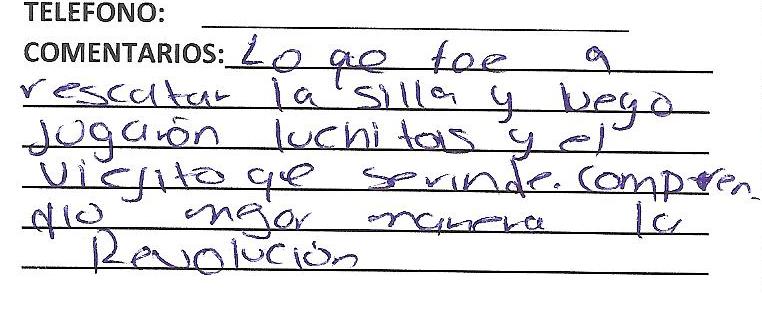 TELEFONO:
COMENTARIOS: Lo qe foe a
rescatar la silla y luego
jugarón luchitas y el
viejito qe serinde. Compren
dio mejor manera la
Revolución